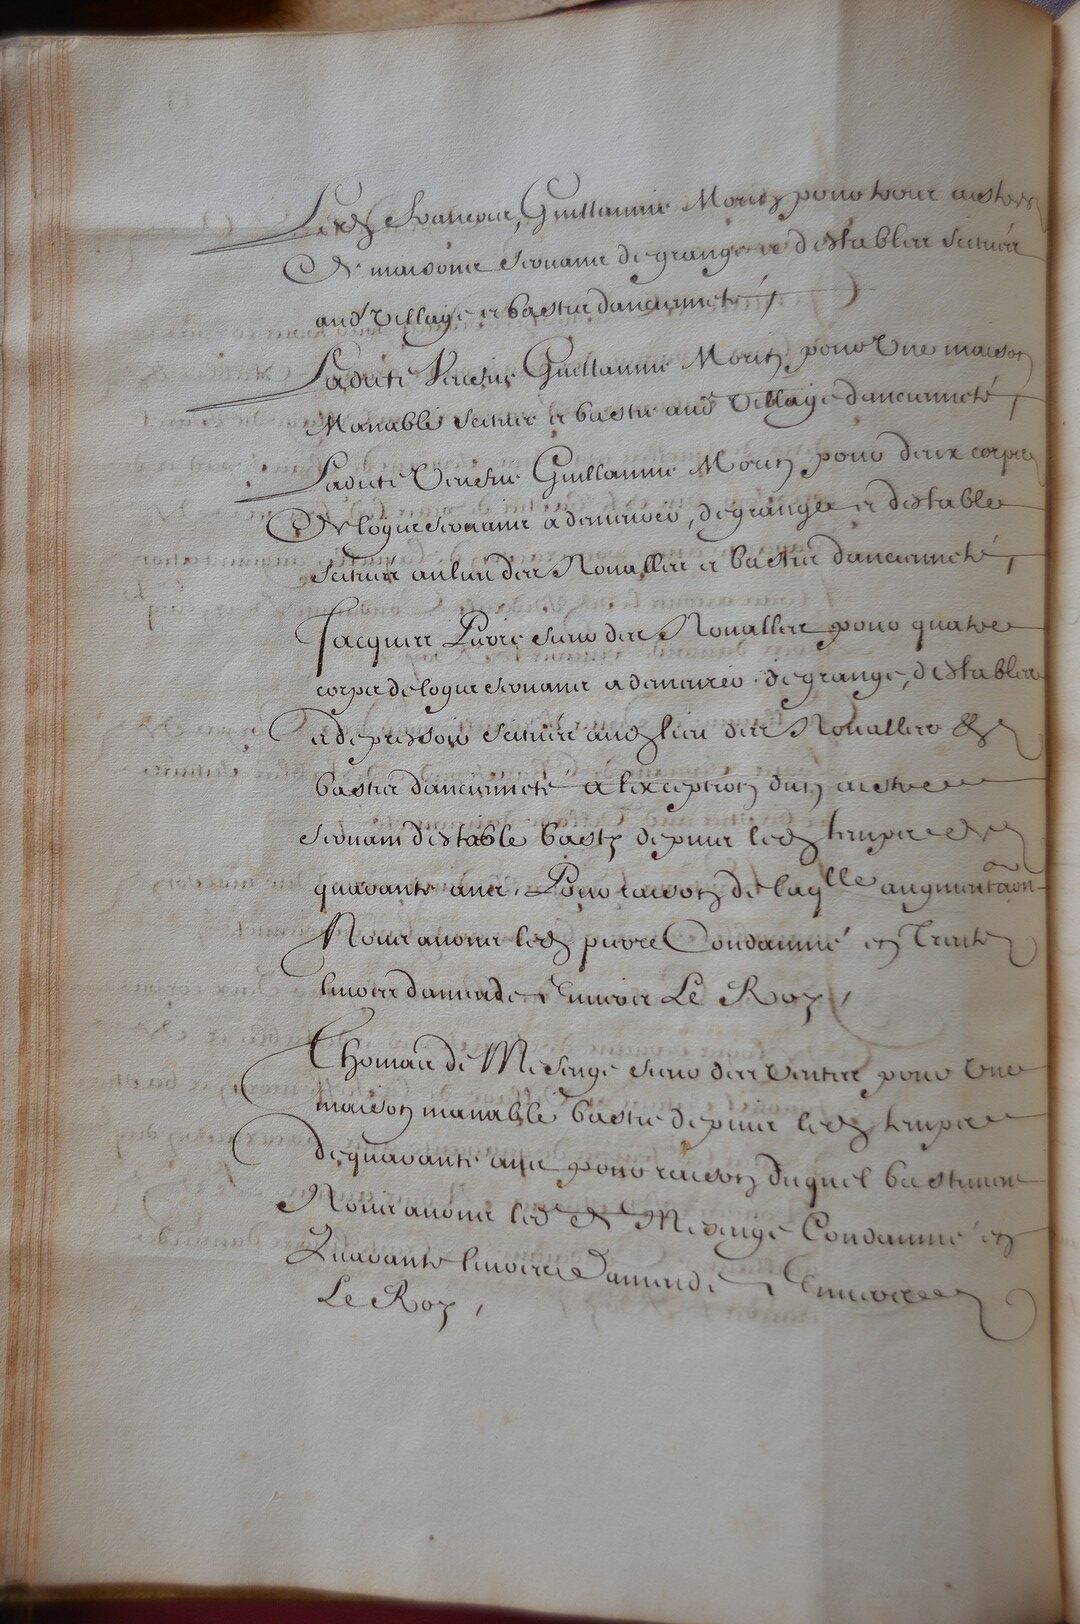 Led. Guillaume Morin pour trois aistres
De maisons servans de grange et d'estables scituez
aud. Village et bastis d'ancienneté,
Ladite Veufve Guillaume Morin pour Une maison
Manable scituée et bastie aud. Village d'ancienneté,
Ladite Veufve Guillaume Morin pour deux corps
De logis servans a demeurer, de grange et d'estables
scituez au lieu des Nouallets et bastis d'ancienneté,
Jacques sieur des Nouallets pour quatre
corps de logis servans a demeurer de grange, d'estables
et de pressoir scituez aud. lieu des Nouallets &
bastis d'ancienneté a l'exception d'un aistre
servant d'estable basty depuis led. temps de
quarante ans, Pour raison de laqlle augmentaon
Nous avons led. Condamné en Trente
livres d'amende Envers Le Roy,
Thomas de Mesenge sieur des Ventes pour Une
maison manable bastie depuis led. temps
de quarante ans pour raison duquel bastiment
Nous avons led. De Mesenge Condamné en
Quarante livres D'amende Envers
Le Roy,